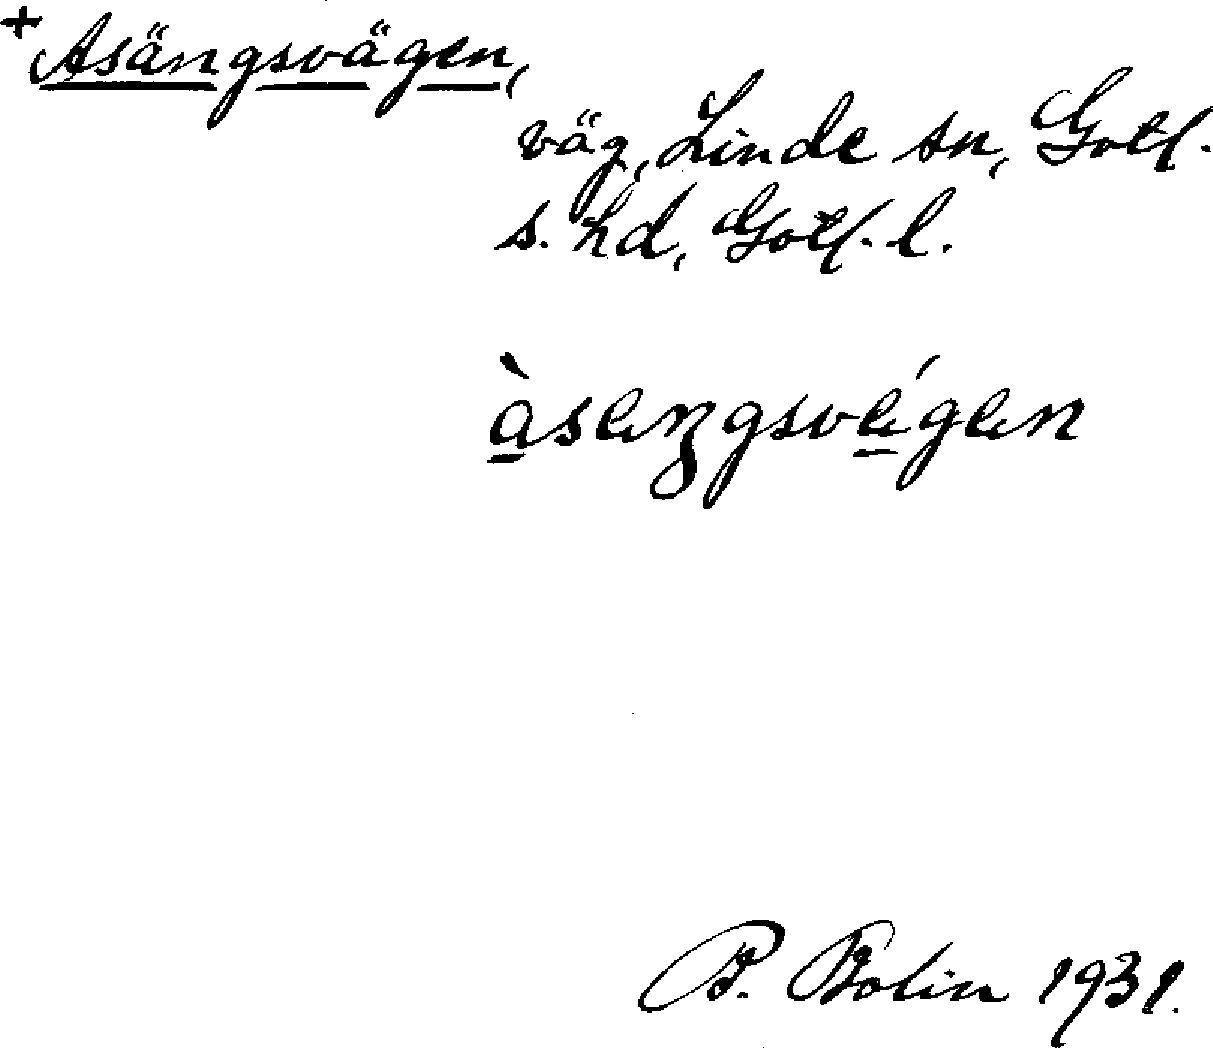 +Asängsvägen,
väg, Linde sn, Gotl.
s. hd, Gotl. l.
àsengsvégen
P. Bolin 1931.